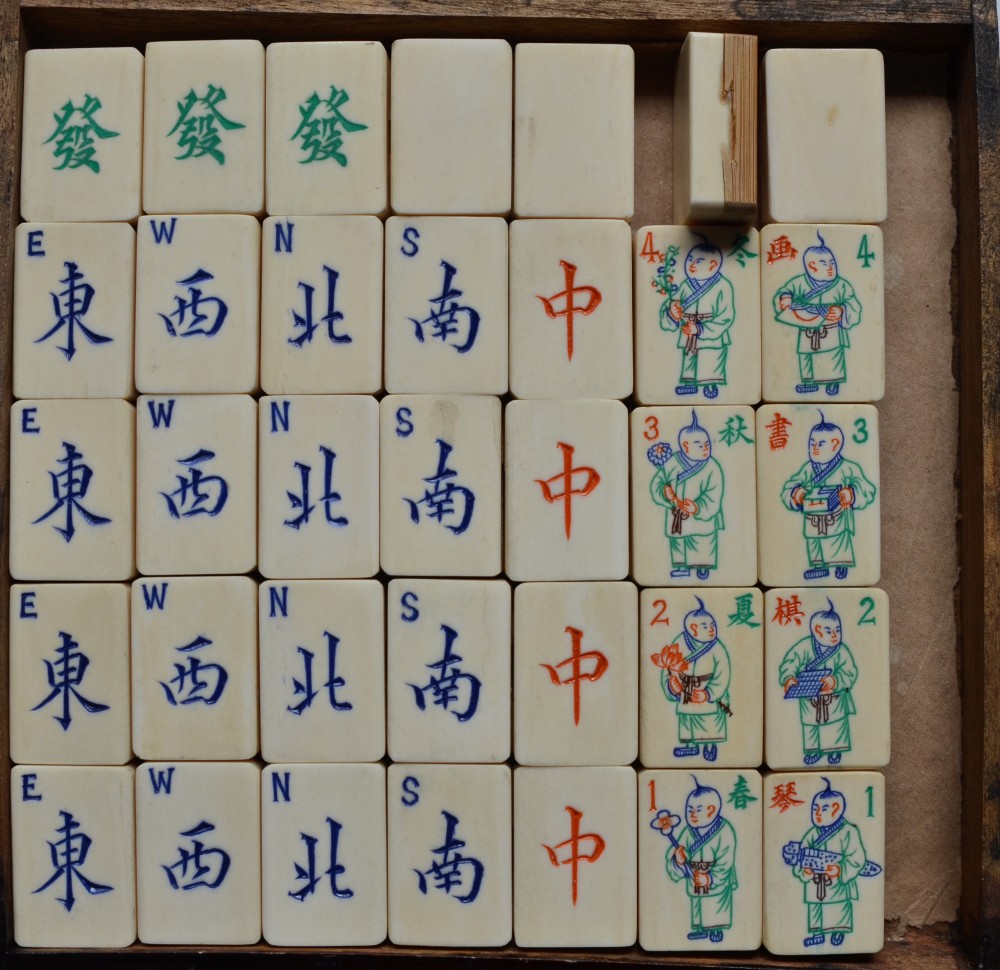 發 發 發
E W N S 4 冬 画 4
東 西 北 南 中
E W N S 3 秋 書 3
東 西 北 南 中
E W N S 2 夏 棋 2
東 西 北 南 中
E W N S 1 春 琴 1
東 西 北 南 中